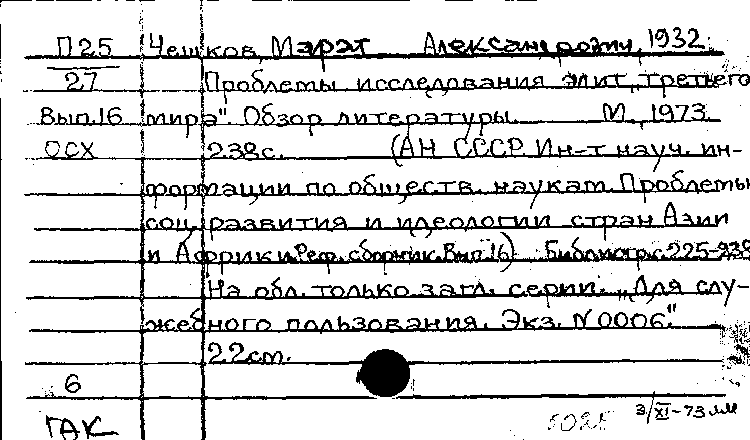 П25 Чешков, Марат Александрович, 1932.
27 Проблемы исследования элит „третьего
Вып.16 мира". Обзор литературы. М., 1973.
ОСХ 238с. (АН СССР. Ин-т науч. ин-
формации по обществ. наукам. Проблемы
соц. развития и идеологии стран Азии
и Африки. Реф. сборник. Вып. 16) Библиогр.с.225-238
На обл. только загл. серии. „Для слу-
жебного пользования. Экз. N 0006."
22см.
6
ГАК 3/XI-73